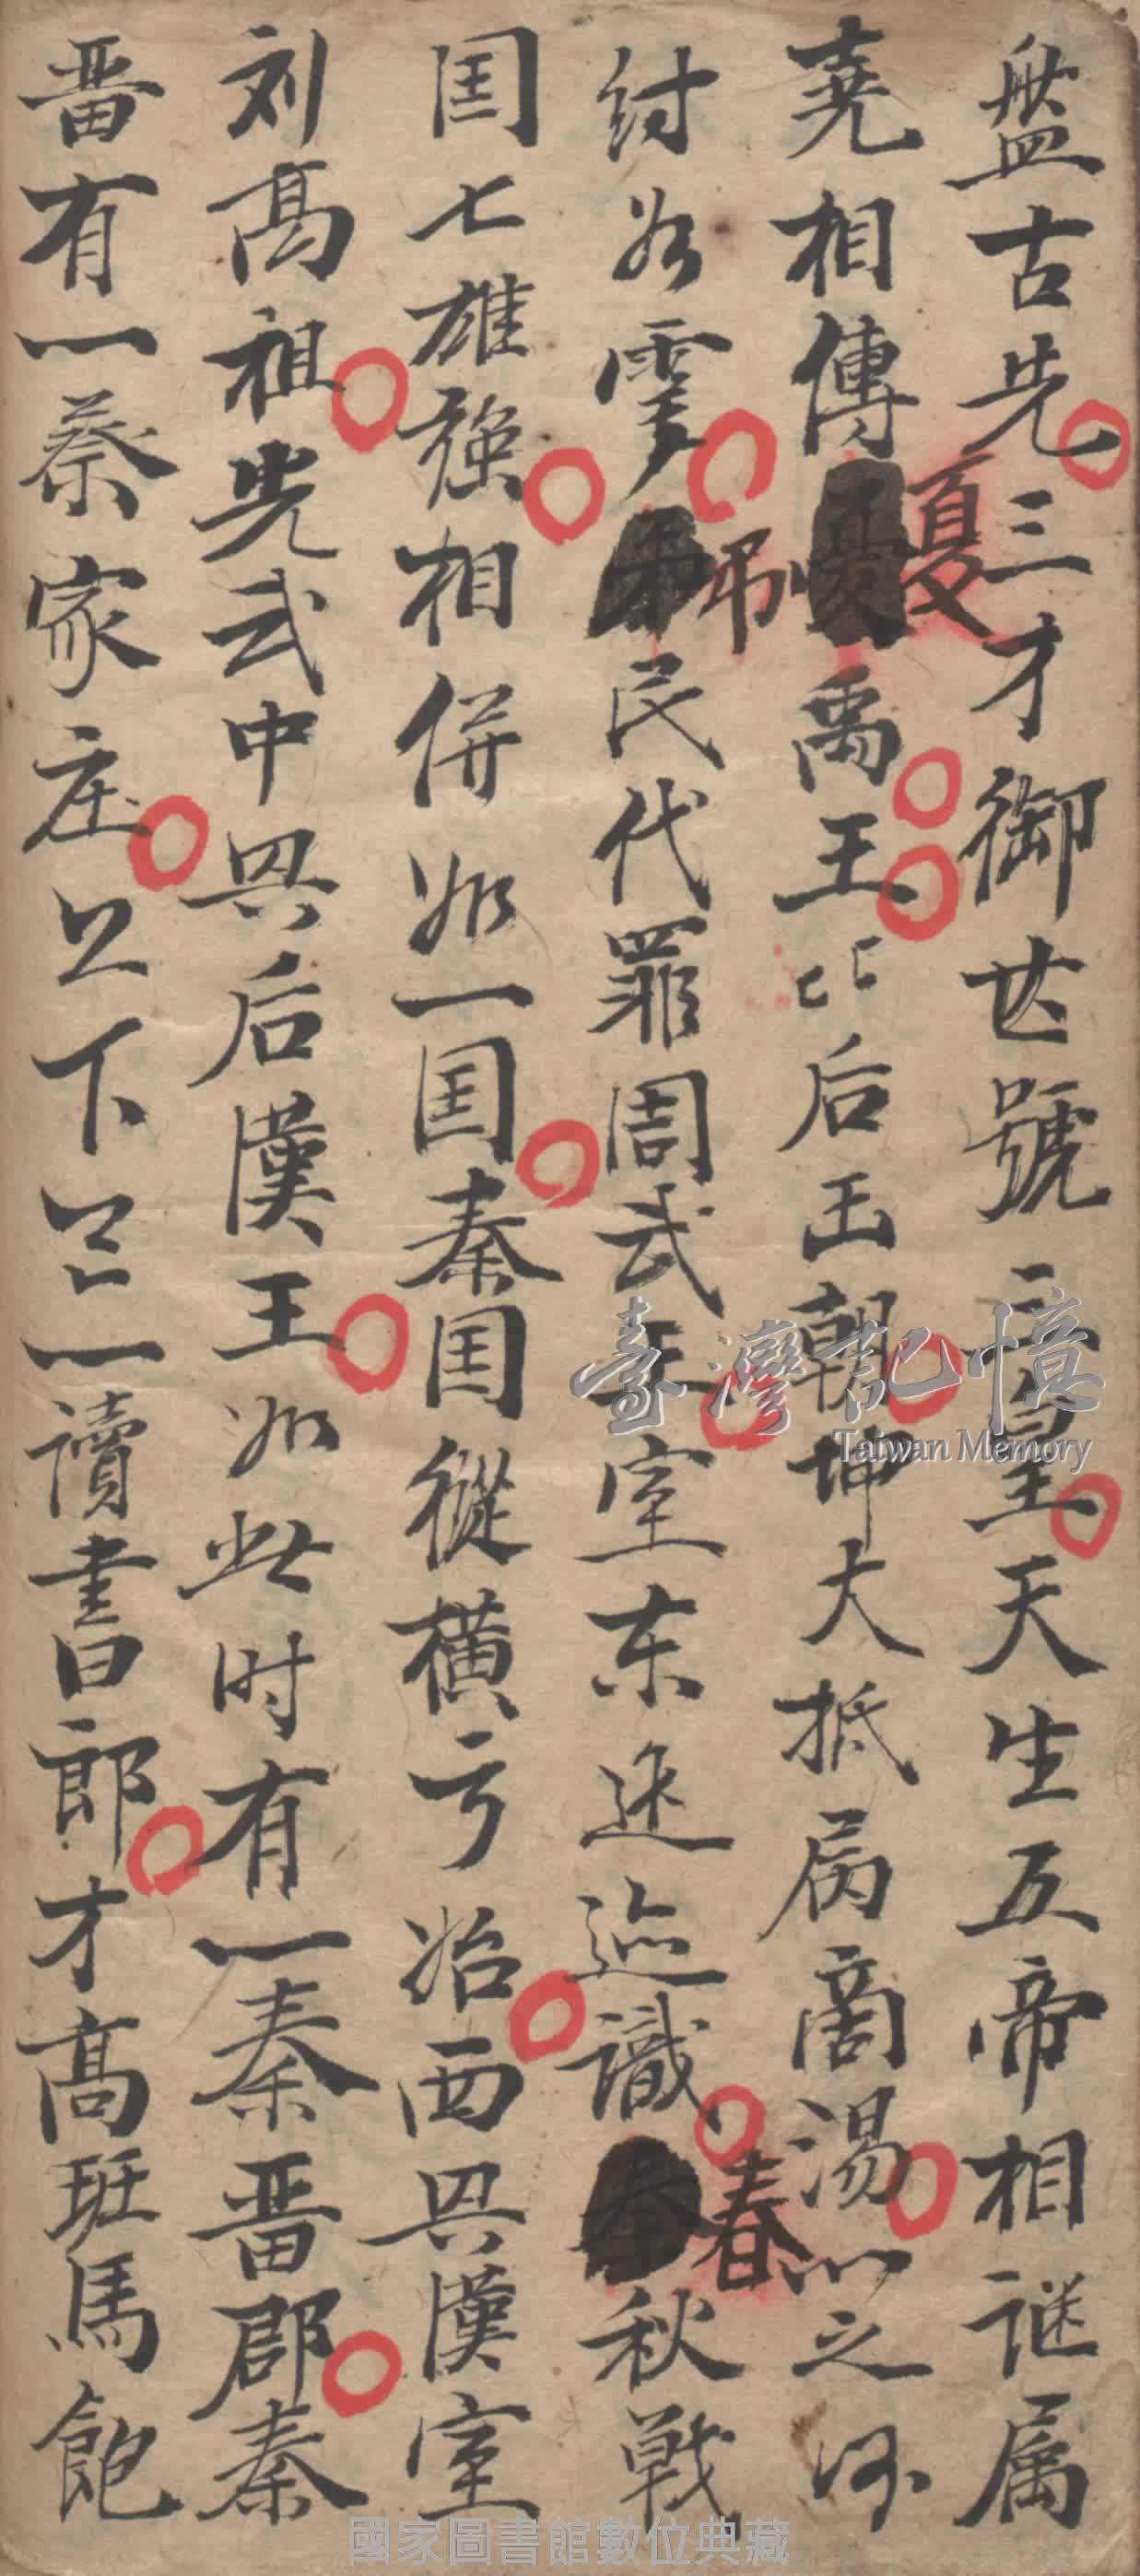 盘古先三才御世號三皇天生五帝相属
尭相傳夏禹王比后国朝坤大抵属商湯以之
紂雲吊民代罪周武王室东迁迹識春秋戰
囯七雄強相併如一囯秦囯縱橫亏治西兴漢室
刘高祖光武中兴后漢王如此时有一秦晋郡秦
晋有一蔡家庄上下一讀書郎才高班馬飽
臺灣記憶
Taiwan Memory
國家圖書館數位典藏